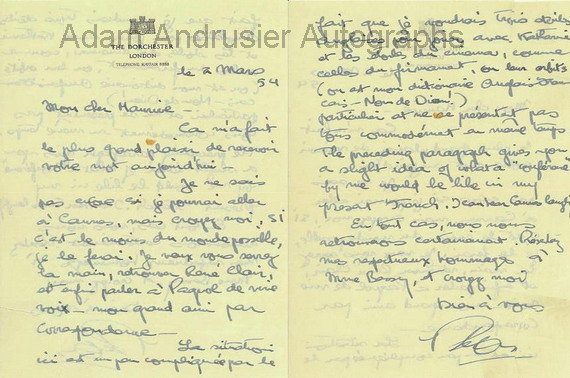 Adam Andrusier Autographs
THE DORCHESTER
LONDON
TELEPHONE MAYFAIR 8888
le 2 Mars
54
Mon cher Maurice
Ca m'a fait
le plus grand plaisir de recevoir
votre mot aujourd'hui -
Je ne sais
pas encore si je pourrai aller
à Cannes, mais croyez moi, si
c'est le moins du monde possible,
je le ferai. Je veux vous serrez
la main, retrouver René Clair,
et enfin parler à Pagnol de vive
voix - mon grand ami par
correspondance -
La situation
ici est un peu compliquée par le
fait que je voudrais trois étoiles
et les étoiles du cinema, comme
celles du firmament, on leur orbits
(ou est mon dictionaire Anglais-Fran
cais - Nom de Dieu!)
particulier et ne se presentent pas
tous commodément au même temps
The preceding paragraph gives you
a slight idea of what a "conférence"
by me would be like in my
present French.
En tout cas, nous nous
retrouverons certainement. Présentez
mes respectueux hommages à
Mme Bessy, et croyez moi
bien à vous